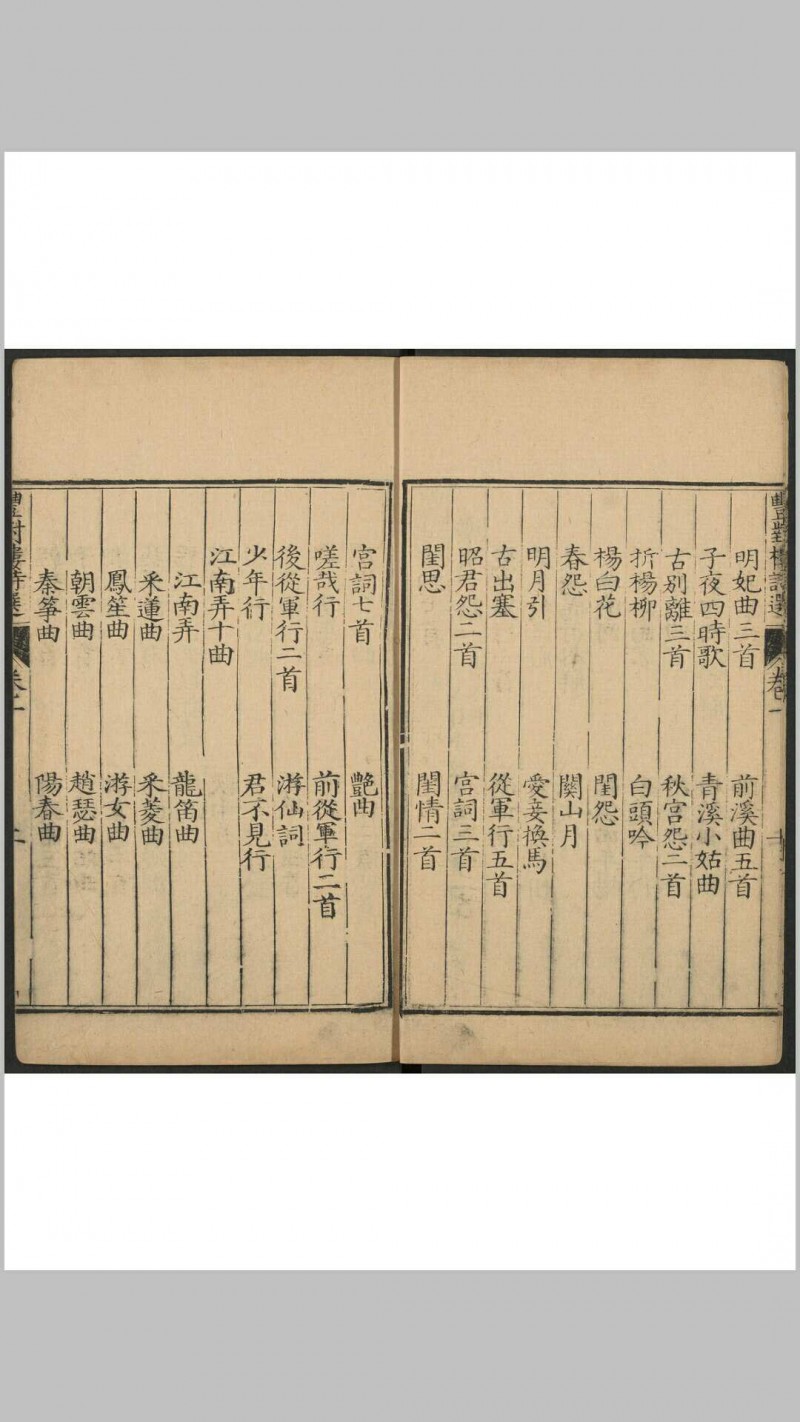 豐對樓詩選 卷一
明妃曲三首 前溪曲五首
子夜四時歌 青溪小姑曲
古别離三首 秋宮怨二首
折楊柳 白頭吟
楊白花 閨怨
春怨 關山月
明月引 愛妾換馬
古出塞 從軍行五首
昭君怨二首 宮詞三首
閨思 閨情二首
宮詞七首 艷曲
嗟哉行 前從軍行二首
後從軍行二首 游仙詞
少年行 君不見行
江南弄十曲
江南弄 龍笛曲
采蓮曲 采菱曲
鳳笙曲 游女曲
朝雲曲 趙瑟曲
秦箏曲 陽春曲
豐對樓詩選